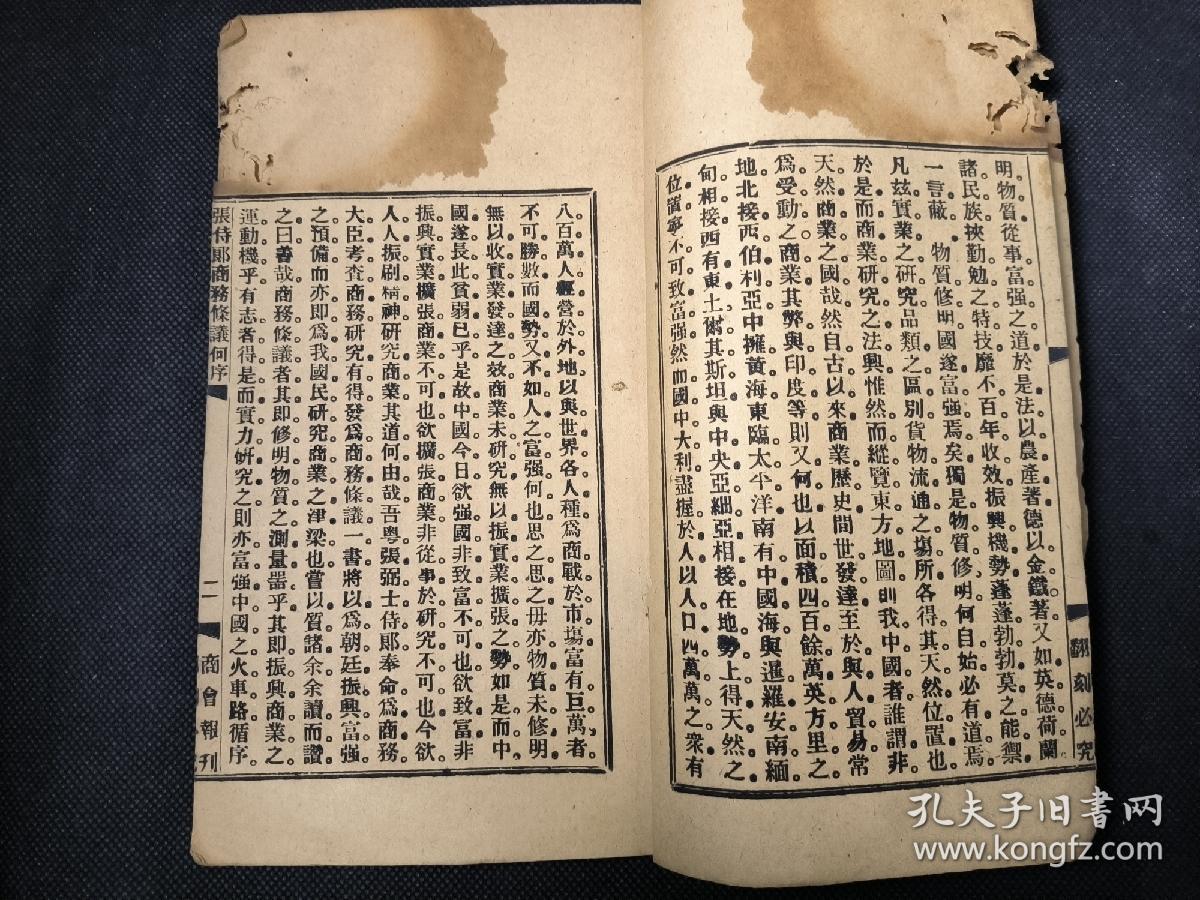 明物質從事富强之道於是法以農產著德以金鐵著又如英德荷蘭
諸民族挾勤勉之特技靡不百年收效振興機勢蓬蓬勃勃莫之能禦
一言蔽 物質修明國遂富强焉矣獨是物質修明何自始必有道焉
凡兹實業之研究品類之區別貨物流通之塲所各得其天然位置也
於是而商業研究之法興惟然而縱覽東方地圖則我中國者誰謂非
天然商業之國哉然自古以來商業歷史間世發達至於與人貿易常
爲受動之商業其弊與印度等則又何也以面積四百餘萬英方里之
地北接西伯利亞中擁黃海東臨太平洋南有中國海與暹羅安南緬
甸相接西有東土爾其斯坦與中央亞細亞相接在地勢上得天然之
位置寧不可致富强然而國中大利盡握於人以人口四萬萬之衆有
翻刻必究
八百萬人經營於外地以與世界各人種爲商戰於市塲富有巨萬者
不可勝數而國勢又不如人之富强何也思之思之毋亦物質未修明
無以收實業發達之效商業未研究無以振實業擴張之勢如是而中
國遂長此貧弱已乎是故中國今日欲强國非致富不可也欲致富非
振興實業擴張商業不可也欲擴張商業非從事於研究不可也今欲
人人振刷精神研究商業其道何由哉吾粤張弼士侍郎奉命爲商務
大臣考查商務研究有得發爲商務條議一書將以爲朝廷振興富强
之預備而亦即爲我國民研究商業之津梁也嘗以質諸余余讀而讚
之曰善哉商務條議者其即修明物質之測量器乎其即振興商業之
運動機乎有志者得是而實力研究之則亦富强中國之火車路循序
張侍郎商務條議何序 二 商會報刊
孔夫子旧书网
www.kongfz.com